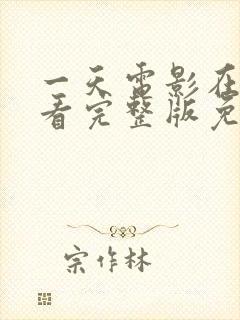 一天雷影在
看完整版免
宗作林